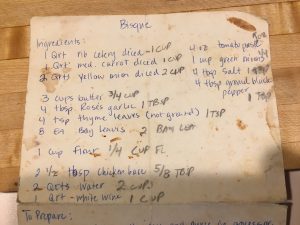 Bisque
Ingredients:
1 Qrt rib celery diced - 1 cup
1 Qrt med. carrot diced 1 cup
2 Qrts yellow onion diced 2 cup
3 cups butter 3/4 cup
4 tbsp Roses garlic 1 TBSP
4 tsp thyme leaves (not ground) 1 TSP
8 EA Bay leaves 2 Bay Leaf
1 cup flour 1/4 cup FL
2 1/2 tbsp chicken base 5/8 TBSP
2 Qrts water 2 cups
1 Qrt - white wine 1 cup
4 oz tomato paste
1 cup green onions 1/4
4 tbsp salt 1 TBSP
4 tbsp ground black pepper 1 TBSP
To Prepare: